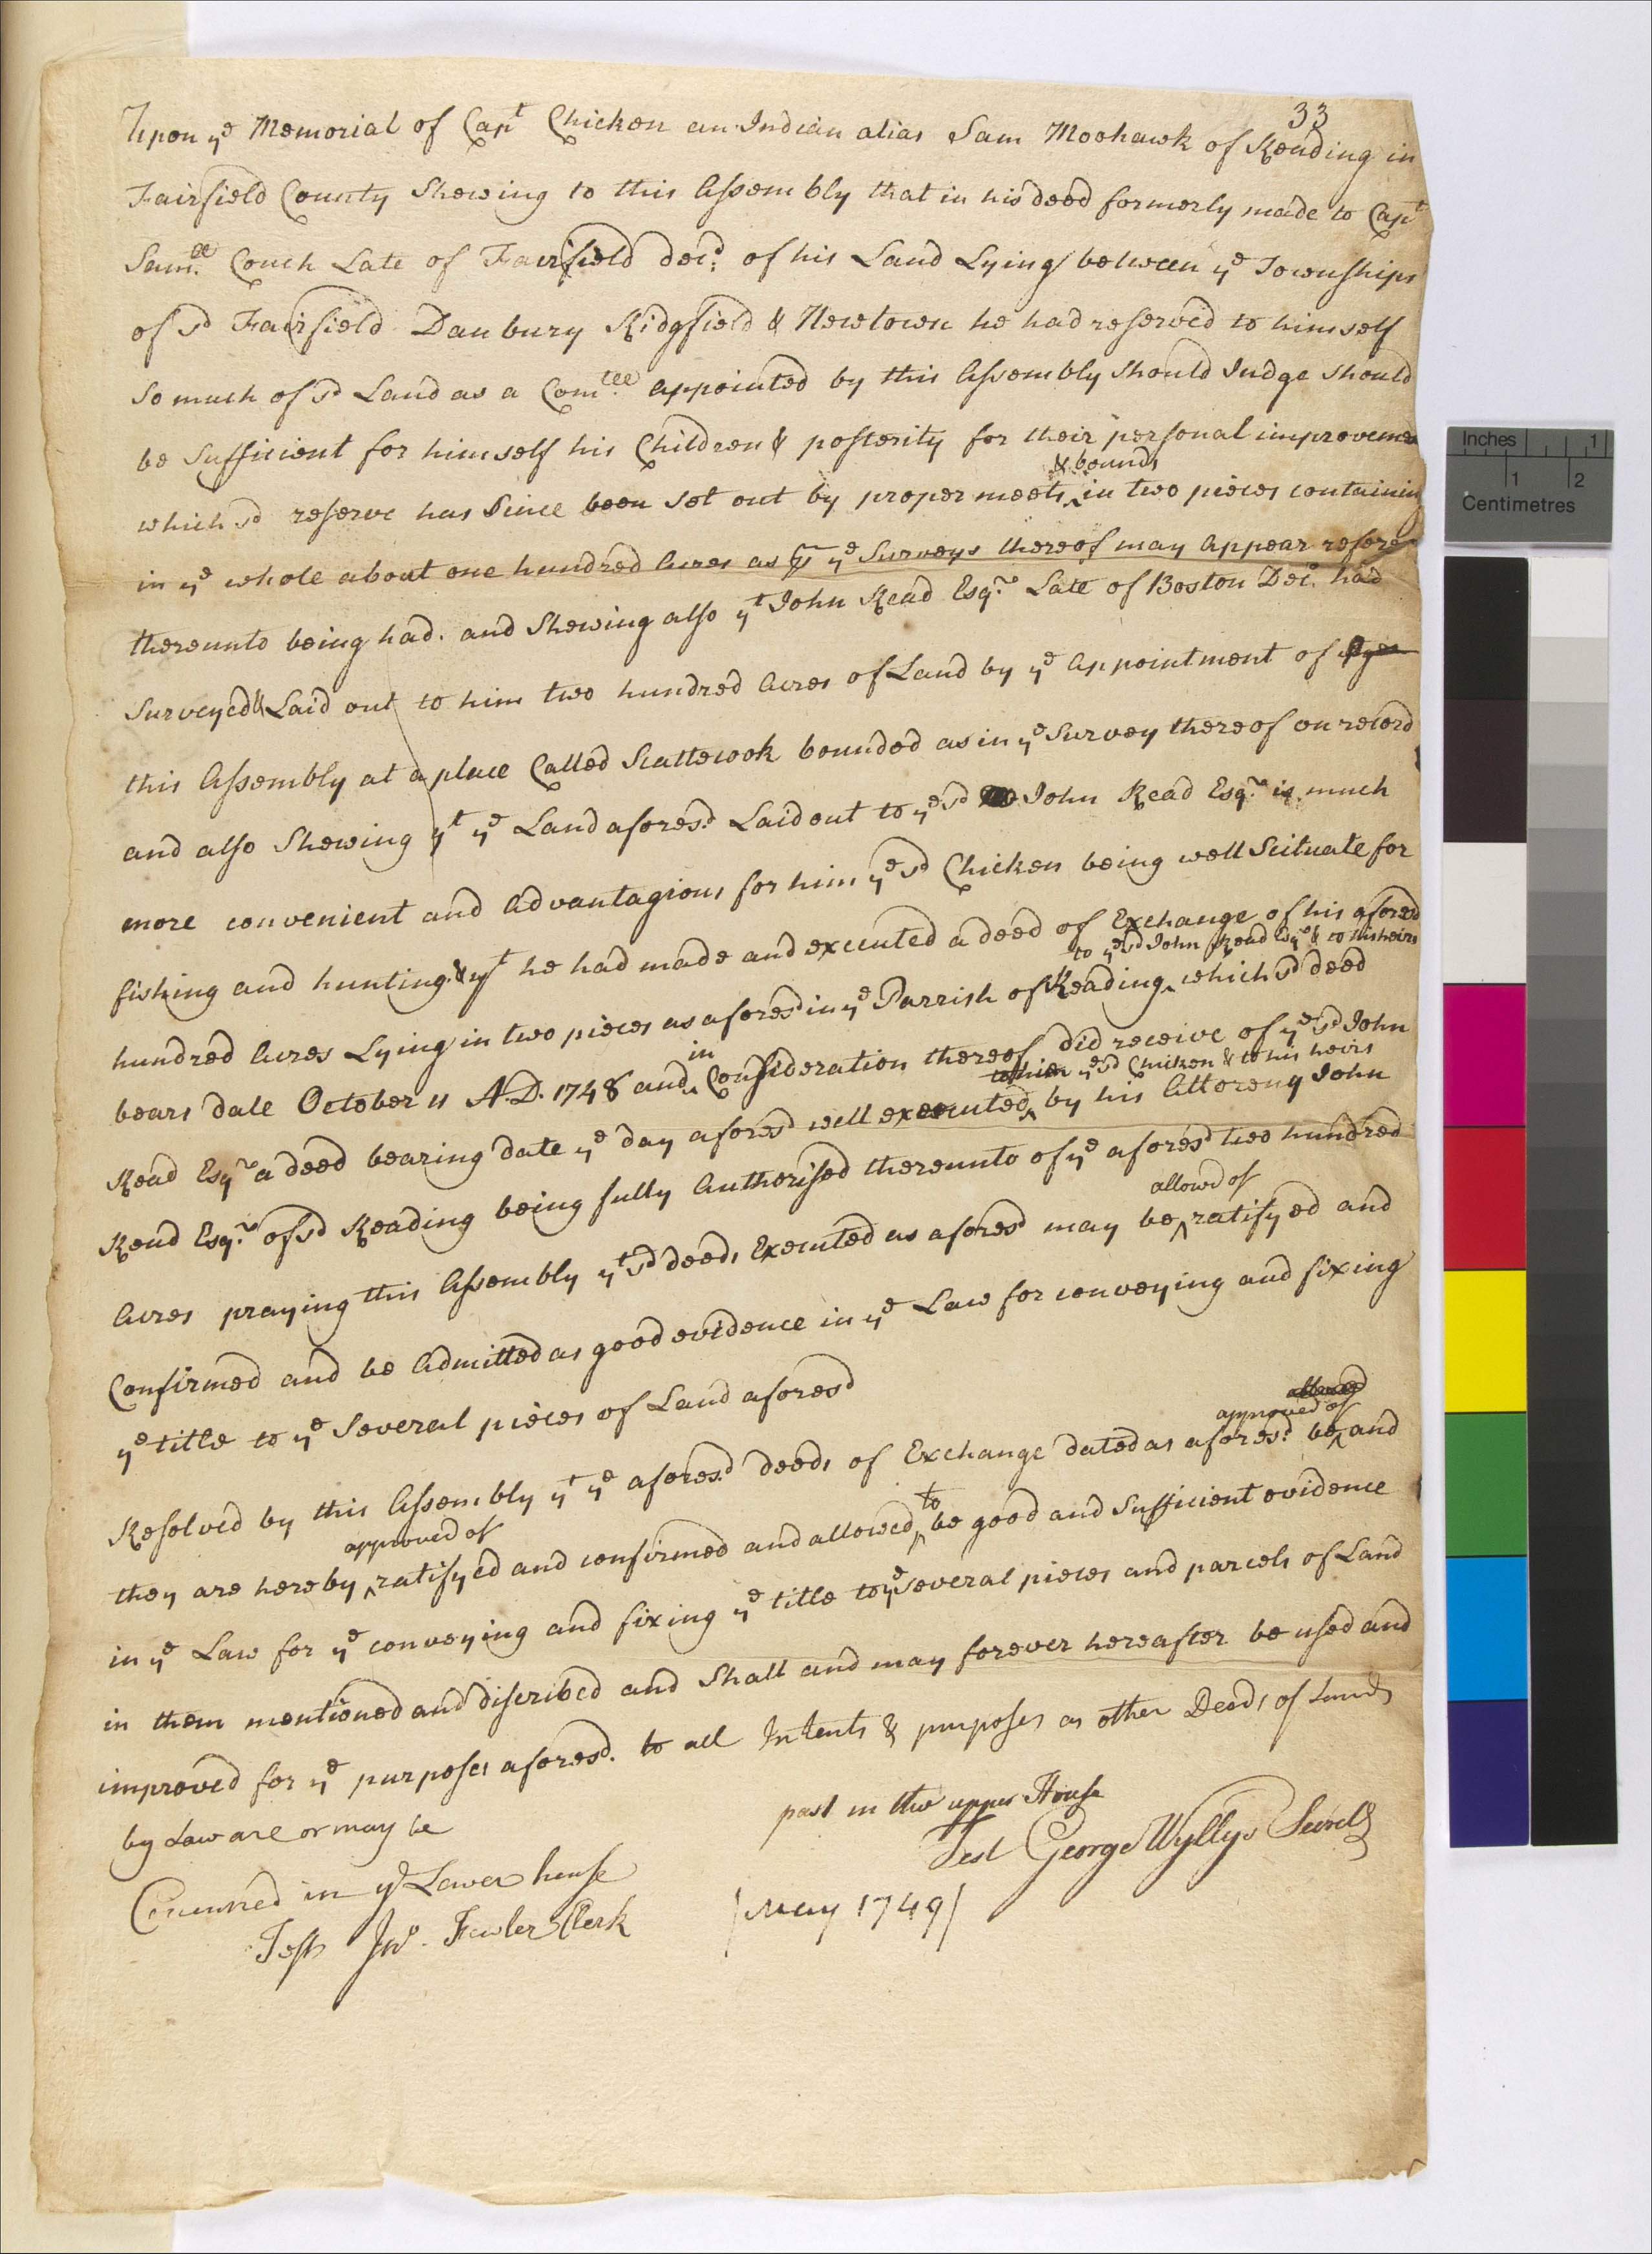 33
Upon ye Memorial of Capt Chicken an Indian alias Sam Moohawk of Reading in
Fairfield County Shewing to this Assembly that in his deed formerly made to Capt
Samll Couch Late of Fairfield decd of his Land Lying between ye Townships
of sd Fairfield Danbury Ridgfield & Newtown he had reserved to himself
so much of sd Land as a Comtee appointed by this Assembly should Judge should
be Sufficient for himself his Children & posterity for their personal improvemen
& bounds
which sd reserve has Since been set out by proper meets in two pieces containing
in ye whole about one hundred Acres as by ye Surveys thereof may Appear refere
thereunto being had. and Shewing also yt John Read Esqr Late of Boston Decd had
Surveyed & Laid out to him two hundred Acres of Land by ye Appointment of
this Assembly at a place Called Scattecook bounded as in ye Survey thereof on record
and also Shewing yt ye Land aforesd Laid out to ye sd John Read Esqr is much
more convenient and Advantagious for him ye sd Chicken being well Scituate for
fishing and hunting & yt he had made and executed a deed of Exchange of his aforesd
to ye sd John Read Esqr & to his heirs
hundred Acres Lying in two pieces as aforesd in ye Parrish of Reading which sd deed
bears date October 11 A.D. 1748 and in Consideration thereof did receive of ye sd John
to him ye sd Chicken & to his heirs
Read Esqr a deed bearing date ye day aforesd well executed by his Attoreny John
Read Esqr of sd Reading being fully Authorised thereunto of ye aforesd two hundred
allowd of
Acres praying this Assembly yt sd deeds Executed as aforesd may be ratifyed and
Confirmed and be Admitted as good evidence in ye Law for conveying and fixing
ye title to ye Several pieces of Land aforesd
allowed
approved of
Resolved by this Assembly yt ye aforesd deeds of Exchange dated as aforesd be and
approved of
they are hereby ratifyed and confirmed and allowed to be good and Sufficient evidence
in ye Law for ye conveying and fixing ye title to ye several pieces and parcels of Land
in them mentioned and discribed and Shall and may forever hereafter be used and
improved for ye purposes aforesd. to all Intents & purposes as other Deeds of Lands
by Law are or may be
past in the upper House
Test George Wyllys Secrety
Concurred in ye Lower house
Test Jno. Fowler Clerk
May 1749
Inches 1
1 2
Centimetres